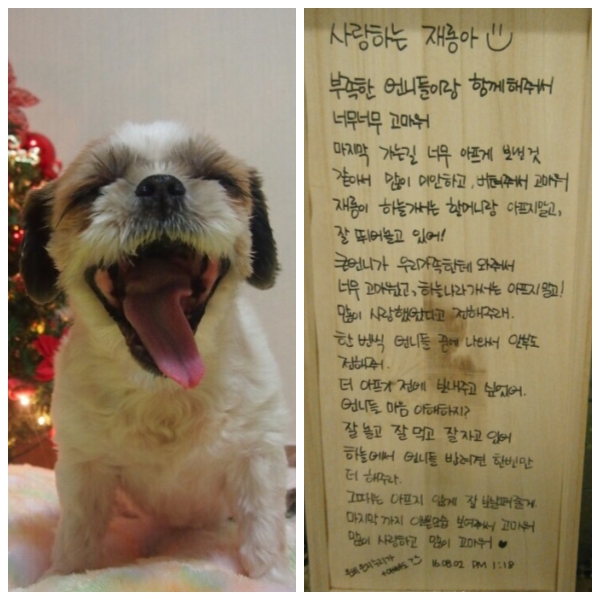 사랑하는 재롱아
부족한 언니들이랑 함께해줘서
너무너무 고마워
마지막 가는길 너무 아프게 보낸것
같아서 맘이 미안하고, 버텨줘서 고마워
재롱이 하늘가서는 할머니랑 아프지말고,
잘 뛰어놀고 있어!
큰언니가 우리가족한테 와줘서
너무 고마웠고, 하늘나라가서는 아프지말고!
많이 사랑했었다고 전해주래.
한 번씩 언니들 꿈에 나와서 안부도
전해줘.
더 아프기 전에 보내주고 싶었어.
언니들 마음 이해하지?
잘 놀고 잘 먹고 잘자고 있어
하늘에서 언니들 만나면 한번만
더 해주라.
그때는 아프지 않게 잘 보살펴줄게.
마지막까지 이쁜모습 보여줘서 고마워
많이 사랑하고 많이 고마워 ♥
16.08.02 PM 1:18